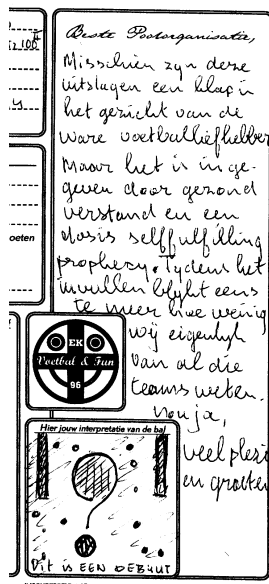 Beste Poolorganisatie,
Misschien zijn deze
uitslagen een klap in
het gezicht van de
ware voetballiefhebber
Maar het is inge-
geven door gezond
verstand en een
dosis selffulfilling
prophecy. Tijdens het
invullen blijkt eens
te meer hoe weinig
wij eigenlijk
van al die
teams weten.
Nou ja,
veel plezier
en groeten
oeten
EK
Voetbal & Fun
96
Hier jouw interpretatie van de bal
Dit is EEN DEBUUT